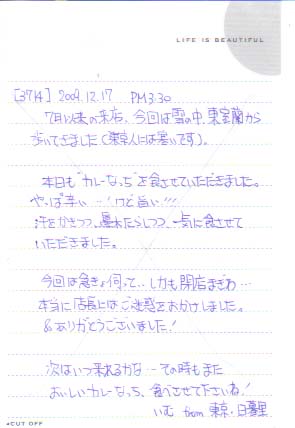 LIFE IS BEAUTIFUL
[3714] 2009.12.17 PM3:30
7月以来の来店、今回は雪の中、東室蘭から
歩いてきました(東京人には寒いです)。
本日も"カレーなっち"を食させていただきました。
やっぱ辛い…!けど旨い!!!
汗をかきつつ、鼻水たらしつつ、一気に食させて
いただきました。
今回は急きょ伺って…しかも閉店まぎわ…
本当に店長にはご迷惑をおかけしました。
&ありがとうございました!
次はいつ来れるかな…その時もまた
おいしいカレーなっち、食べさせて下さいね!
いむ from 東京・日暮里
CUT OFF